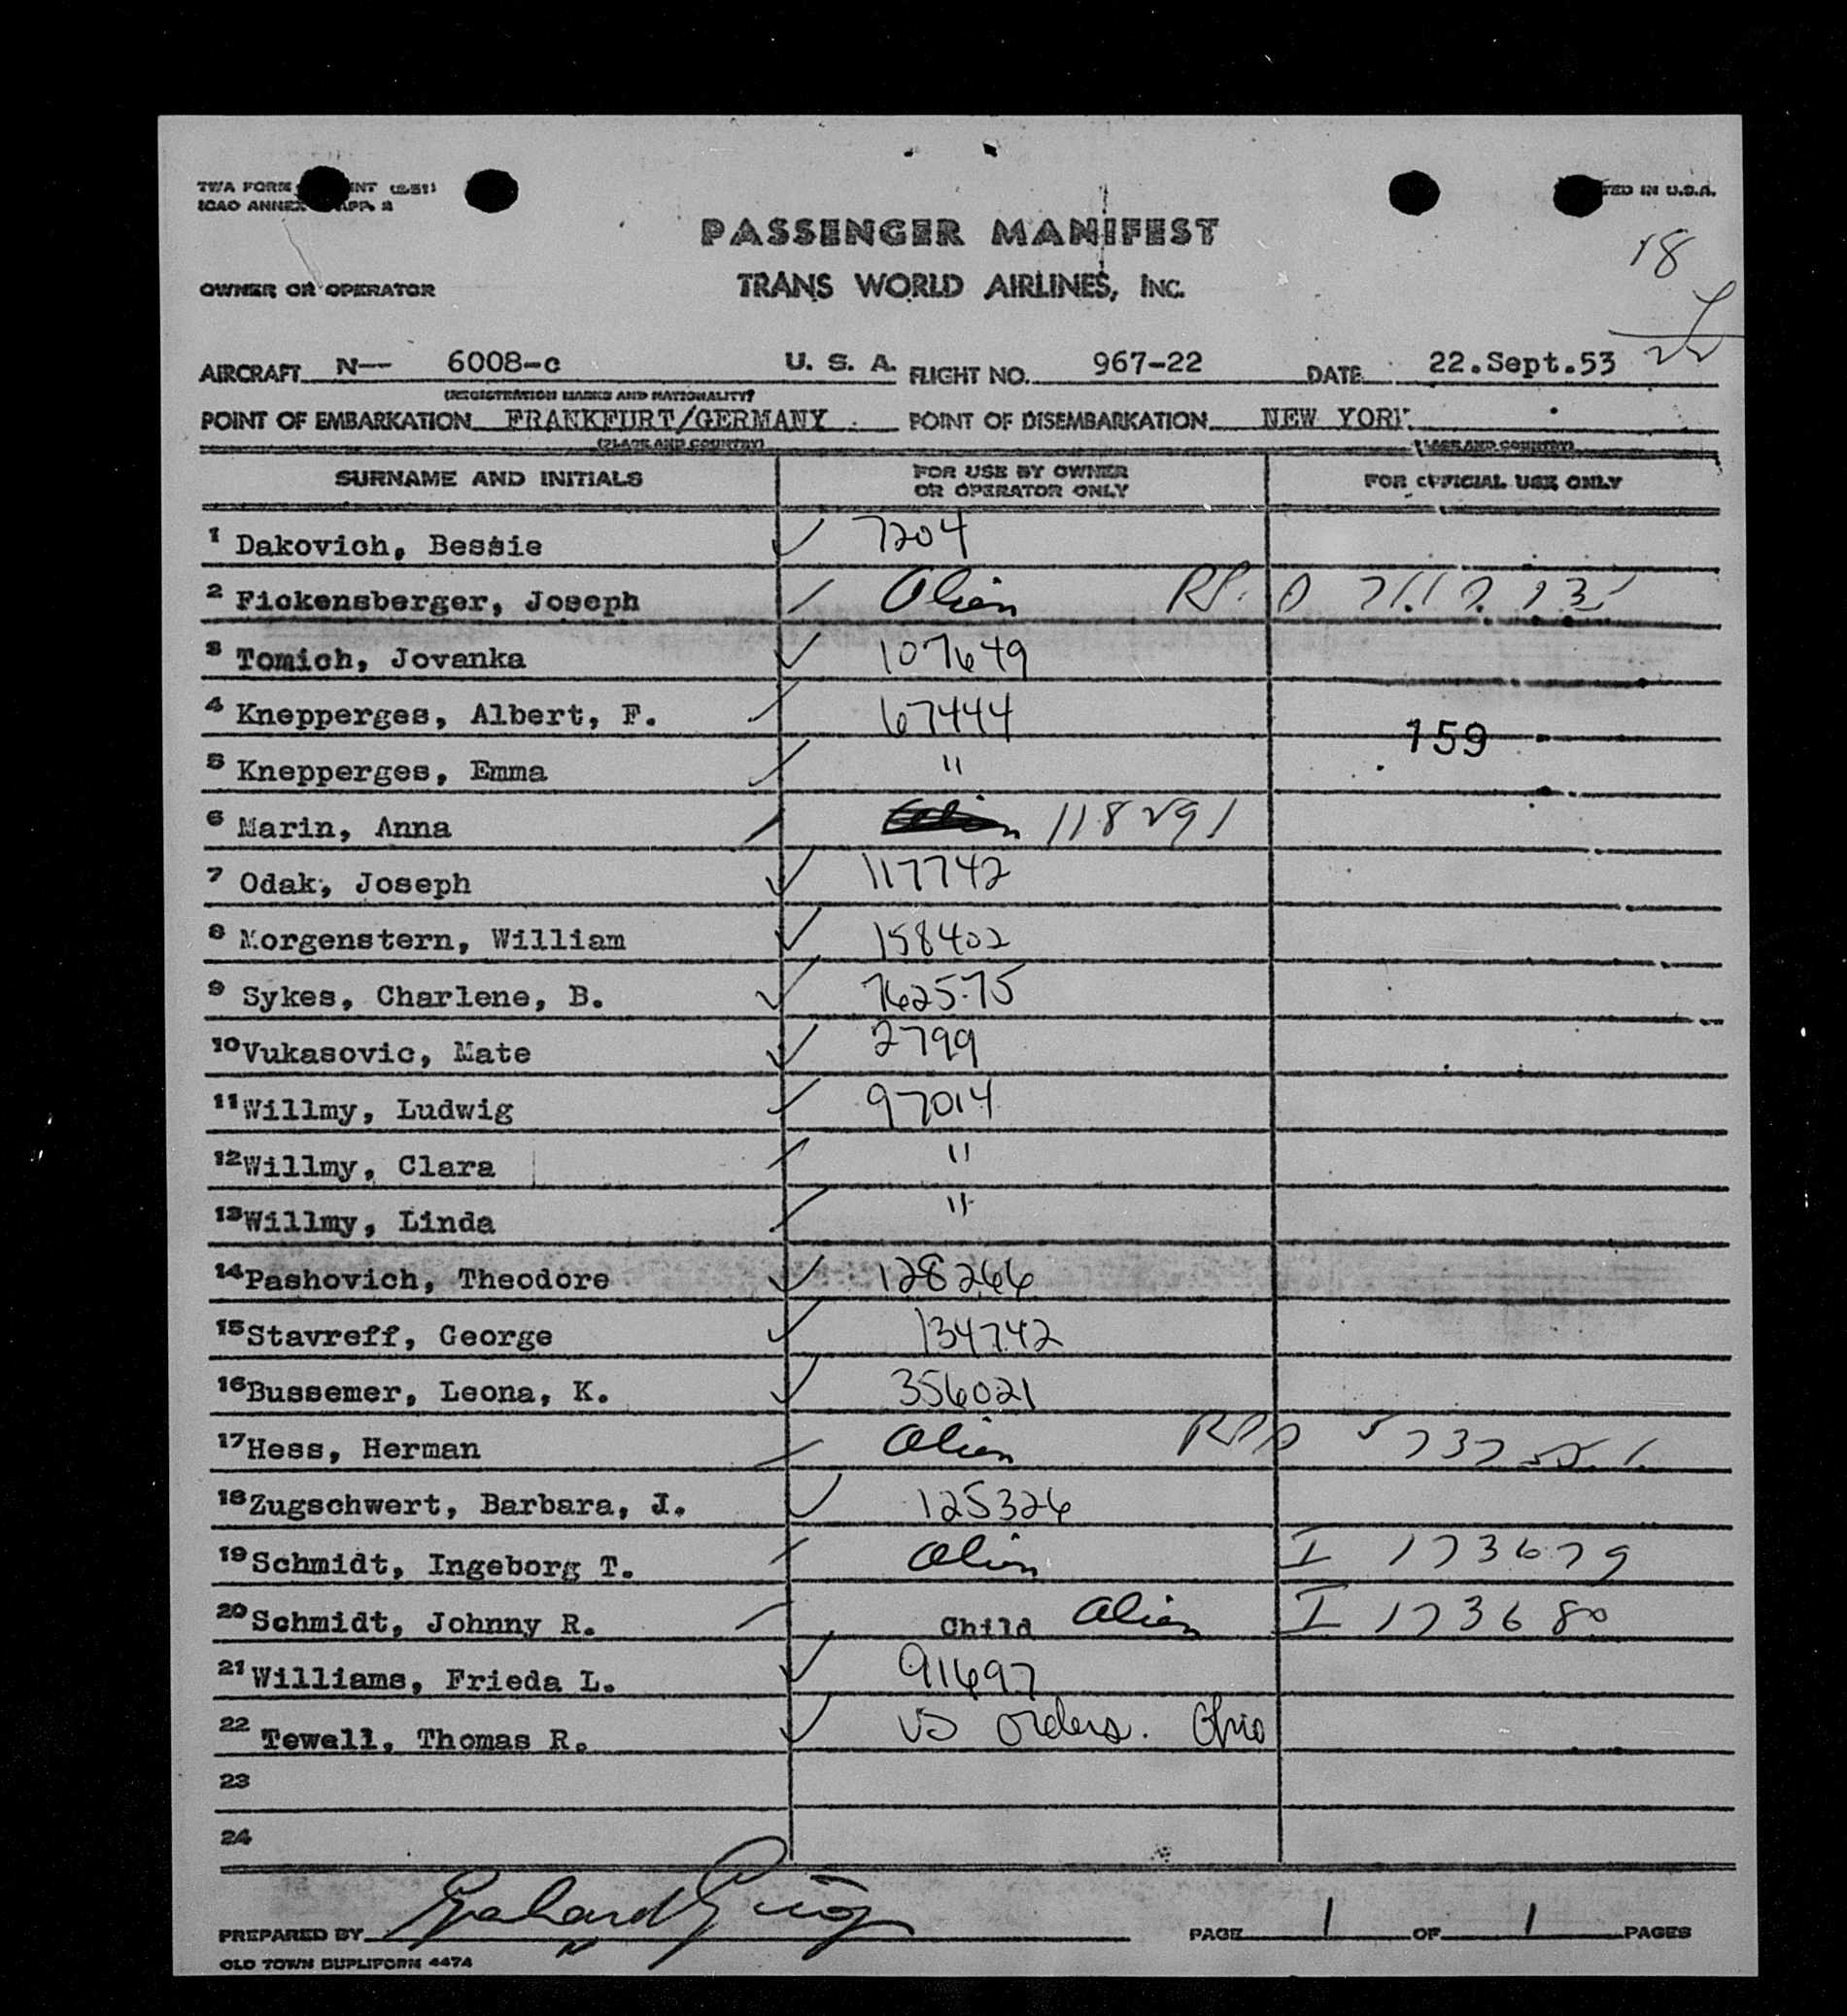 TWA FORM INT (2-51) TED IN U.S.A.
ICAO ANNEX APP. 2
PASSENGER MANIFEST
18
OWNER OR OPERATOR TRANS WORLD AIRLINES, INC.
22
AIRCRAFT N— 6008-c U. S. A. FLIGHT NO. 967-22 DATE 22.Sept.53
(REGISTRATION MARKS AND NATIONALITY)
POINT OF EMBARKATION FRANKFURT/GERMANY POINT OF DISEMBARKATION NEW YORK
(PLACE AND COUNTRY) (PLACE AND COUNTRY)
SURNAME AND INITIALS FOR USE BY OWNER OR OPERATOR ONLY FOR OFFICIAL USE ONLY
1 Dakovich, Bessie ✓ 7204
2 Fickensberger, Joseph Alien
3 Tomich, Jovanka ✓ 107649
4 Knepperges, Albert, F. 67444
159
5 Knepperges, Emma "
6 Marin, Anna 118291
7 Odak, Joseph ✓ 117742
8 Morgenstern, William ✓ 158402
9 Sykes, Charlene, B. ✓ 762575
10 Vukasovic, Mate ✓ 2799
11 Willmy, Ludwig 97014
12 Willmy, Clara "
13 Willmy, Linda "
14 Pashovich, Theodore ✓ 128266
15 Stavreff, George ✓ 134742
16 Bussemer, Leona, K. ✓ 356021
17 Hess, Herman Alien
18 Zugschwert, Barbara, J. ✓ 125326
19 Schmidt, Ingeborg T. Alien I 173679
20 Schmidt, Johnny R. Child Alien I 173680
21 Williams, Frieda L. ✓ 91697
22 Tewell, Thomas R. ✓ US orders. Ohio
23
24
PREPARED BY PAGE 1 OF 1 PAGES
OLD TOWN DUPLIFORM 4474